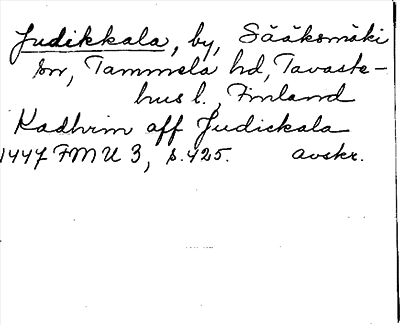 Judikkala, by, Sääksmäki
sn, Tammela hd, Tavaste-
hus l., Finland
Kadhrin aff Judickala
1447 FMU 3, s. 425. avskr.